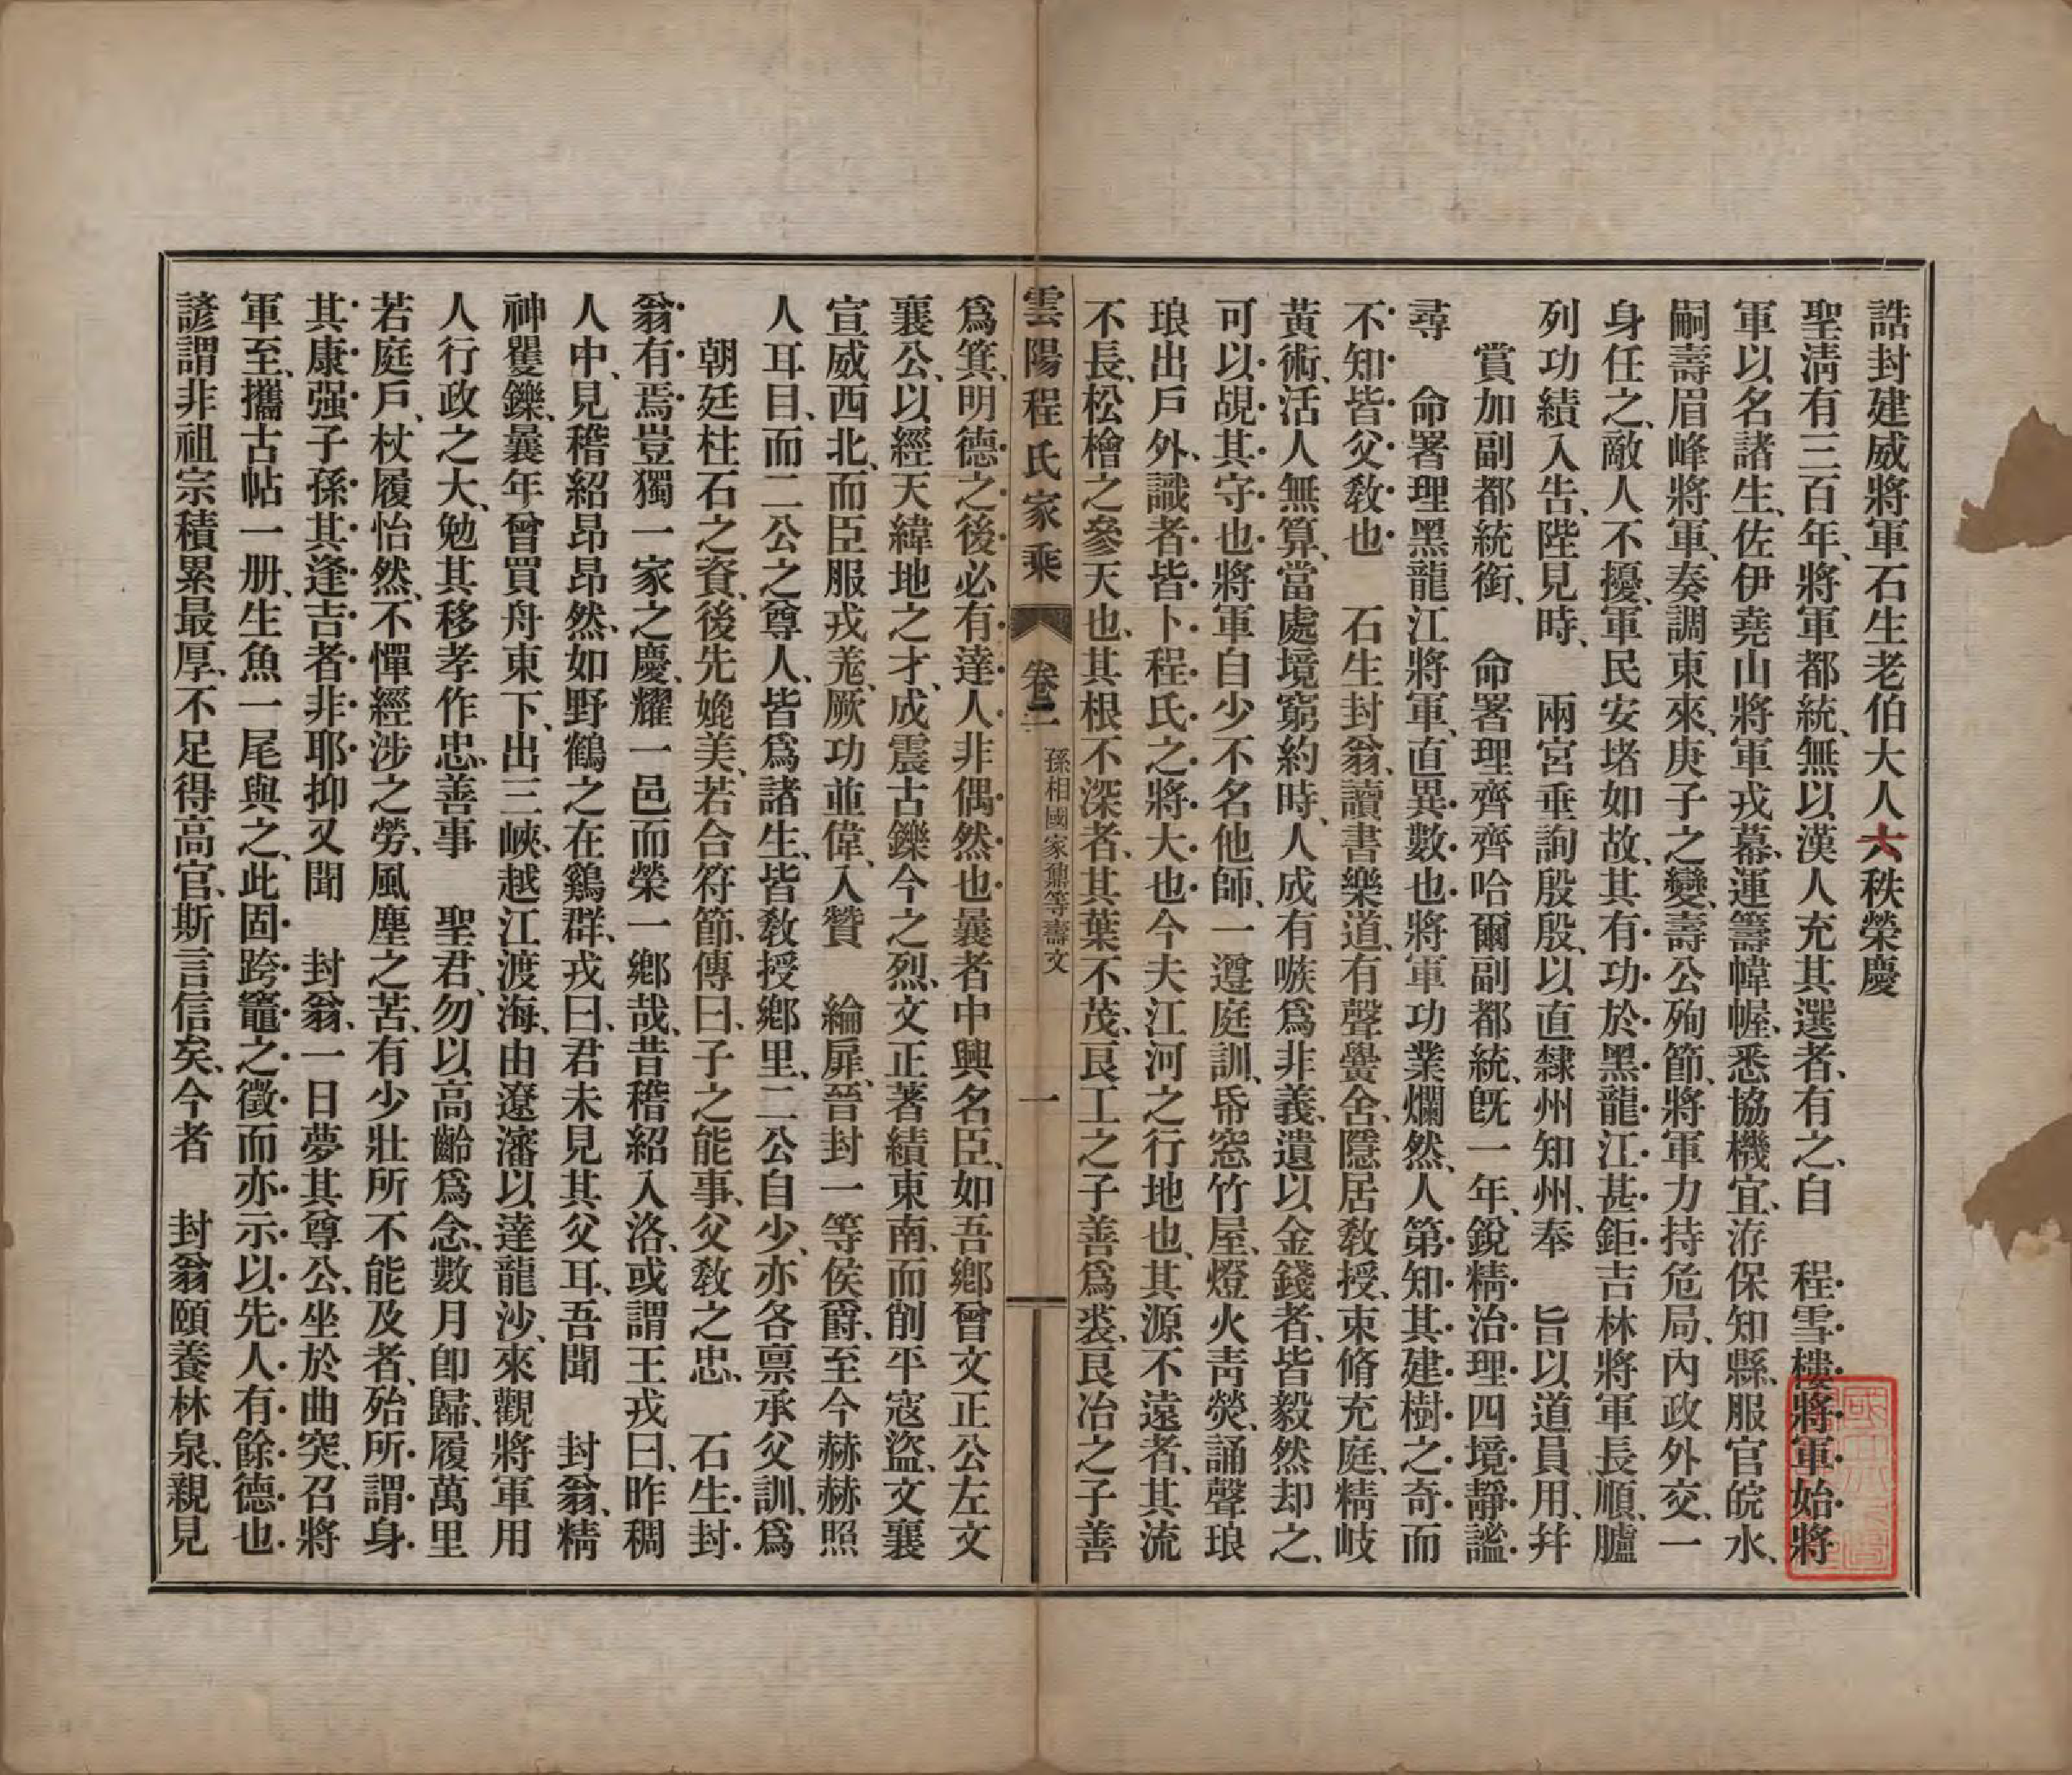 誥封建威將軍石生老伯大人六秩榮慶
聖淸有三百年、將軍都統、無以漢人充其選者、有之、自　程雪樓將軍始將
軍以名諸生、佐伊堯山將軍戎幕、運籌幃幄、悉協機宜、洊保知縣、服官皖水、
嗣壽眉峰將軍、奏調東來、庚子之變、壽公殉節、將軍力持危局、內政外交、一
身任之、敵人不擾、軍民安堵如故、其有功於黑龍江甚鉅吉林將軍長順、臚
列功績入告、陛見時、　兩宮垂詢殷殷、以直隸州知州、奉　旨以道員用、幷
賞加副都統銜、　命署理齊齊哈爾副都統、旣一年、銳精治理四境靜謐
尋　命署理黑龍江將軍、直異數也將軍功業爛然、人第知其建樹之奇而
不知皆父敎也　石生封翁、讀書樂道、有聲黌舍、隱居敎授、束脩充庭、精岐
黃術、活人無算、當處境窮約時、人成有嗾爲非義、遺以金錢者、皆毅然却之、
可以覘其守也將軍自少不名他師、一遵庭訓、帋窓竹屋、燈火靑熒、誦聲琅
琅出戶外、識者皆卜程氏之將大也今夫江河之行地也、其源不遠者、其流
不長、松檜之參天也、其根不深者、其葉不茂、艮工之子善爲裘、艮冶之子善
雲陽程氏家乘　卷二　孫相國家鼐等壽文　一
爲箕、明德之後必有達人非偶然也曩者中興名臣、如吾鄕曾文正公左文
襄公、以經天緯地之才、成震古鑠今之烈、文正著績東南、而削平寇盜、文襄
宣威西北、而臣服戎羗、厥功並偉、入贊　綸扉、晉封一等侯爵、至今赫赫照
人耳目、而二公之尊人、皆爲諸生、皆敎授鄕里、二公自少、亦各禀承父訓、爲
朝廷柱石之資、後先媲美、若合符節、傳曰、子之能事、父敎之忠、　石生封
翁有焉豈獨一家之慶、耀一邑而榮一鄕哉、昔稽紹入洛、或謂王戎曰、昨稠
人中、見稽紹昂昂然、如野鶴之在鷄群、戎曰、君未見其父耳、吾聞　封翁、精
神矍鑠、曩年曾買舟東下、出三峽、越江渡海、由遼瀋以達龍沙、來觀將軍用
人行政之大、勉其移孝作忠、善事　聖君、勿以高齡爲念、數月卽歸、履萬里
若庭戶、杖履怡然、不憚經涉之勞、風塵之苦、有少壯所不能及者、殆所謂身
其康强子孫其逢吉者非耶抑又聞　封翁、一日夢其尊公、坐於曲突、召將
軍至、攜古帖一册、生魚一尾與之、此固跨竈之徵而亦示以先人有餘德也
諺謂非祖宗積累最厚、不足得高官、斯言信矣、今者　封翁頤養林泉、親見